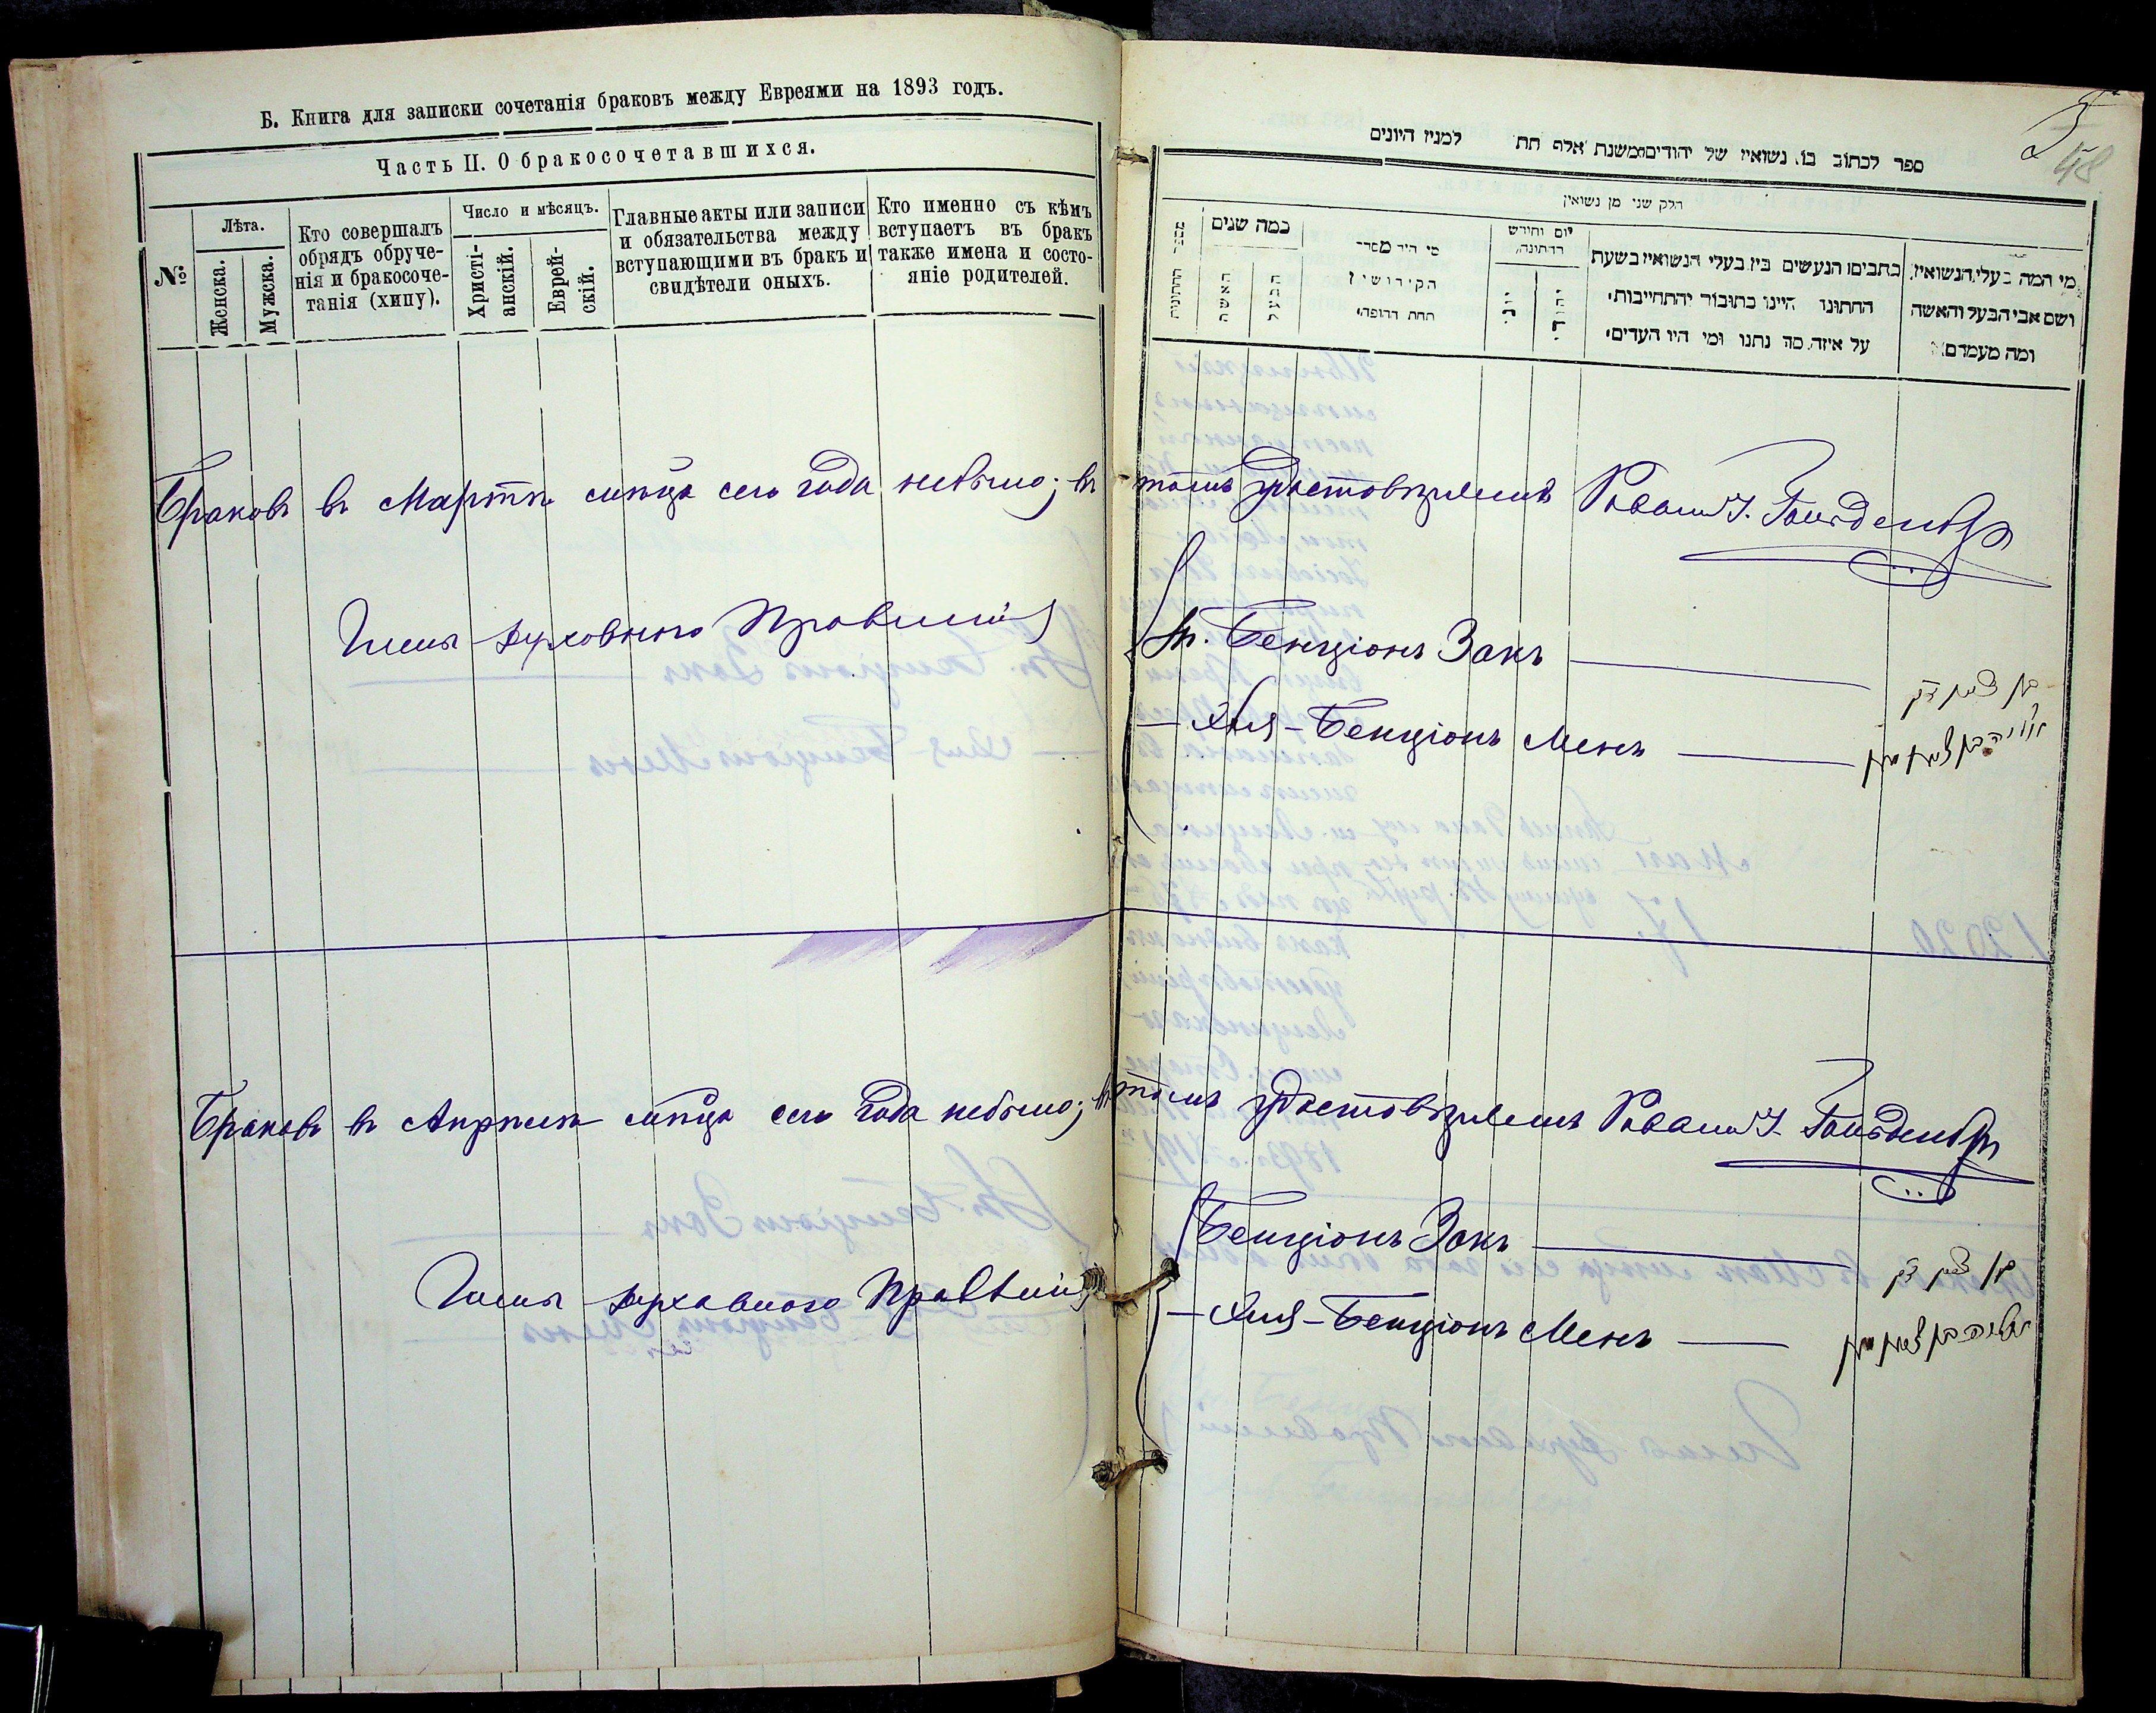 Б. Книга для записки сочетанія браковъ между Евреями на 1893 годъ.
Часть II. О бракосочетавшихся.
№
Лѣта.
Женска.
Мужска.
Кто совершалъ
обрядъ обруче-
нія и бракосоче-
танія (хипу).
Число и мѣсяцъ.
Христі-
анскій.
Еврей-
скій.
Главные акты или записи
и обязательства между
вступающими въ бракъ и
свидѣтели оныхъ.
Кто именно съ кѣмъ
вступаетъ въ бракъ
также имена и состо-
яніе родителей.
48
ספר לכתוב בו נשואין של יהודים משנת אלף תת למנין היונים
חלק שני מן נשואין
כמה שנים
האשה
הבעל
מי היה מסדר
הקידושין
תחת החופה
יום וחודש
החתונה
יוני
יהודי
כתבים הנעשים בין בעלי הנשואין בשעת
החתונו היינו כתובור והתחייבות
על איזה סך נתנו ומי היו העדים
מי המה בעלי הנשואין
ושם אבי הבעל והאשה
ומה מעמדם
Браковъ въ Мартѣ мѣсяца сего года небыло; въ томъ удостовѣряемъ Раввинъ
Члены духовнаго Правленія
Бенціонъ Закъ
בן ציון זק
Бенціонъ Менъ
בן ציון מן
Браковъ въ Апрѣлѣ мѣсяца сего года небыло; въ томъ удостовѣряемъ Раввинъ
Члены духовнаго Правленія
Бенціонъ Закъ
בן ציון זק
Бенціонъ Менъ
בן ציון מן